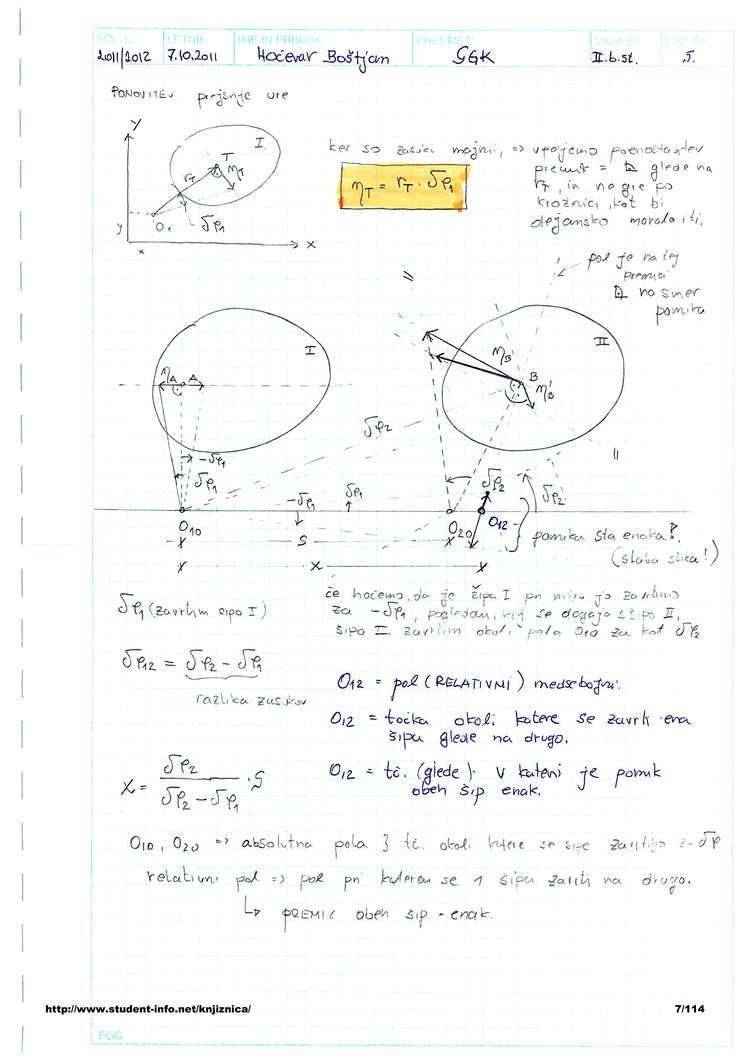 ŠOL. L. LETNIK IME IN PRIIMEK PREDMET VAJA ŠT. LIST ŠT.
2011/2012 7.10.2011 Hočevar Boštjan GGK II.b.st. 5.
PONOVITEV prejšnje ure
y
I
T
ηT
rT
O1
δφ1
y
x
x
ker so zasuki majni, => vpeljemo poenostavitev
ηT = rT · δφ1
premik = ⊥ glede na
rT, in ne gre po
krožnici, kot bi
dejansko moralo iti.
pol je na tej
premici
⊥ na smer
pomika
I
ηA A
II
ηB
B
ηB'
δφ2
-δφ1
δφ1
-δφ1
δφ1
δφ2
δφ2
O10
S
O20
O12
pomika sta enaka!
(slaba slika!)
x
δφ1 (zavrtim šipo I)
če hočemo, da je šipa I pri miru jo zavrtimo
za -δφ1, pogledam, kaj se dogaja s šipo II,
šipo II. zavrtim okoli pola O10 za kot δφ2
δφ12 = δφ2 - δφ1
razlika zasukov
O12 = pol (RELATIVNI) medsebojni.
O12 = točka okoli katere se zavrti ena
šipa glede na drugo.
X = δφ2 / (δφ2 - δφ1) · S
O12 = tč. (glede) v kateri je pomik
obeh šip enak.
O10, O20 => absolutna pola } tč. okoli katere se šipe zavrtijo z δφ
relativni pol => pol pri katerem se 1 šipa zavrti na drugo.
↳ PREMIK obeh šip - enak.
http://www.student-info.net/knjiznica/ 7/114
FGG